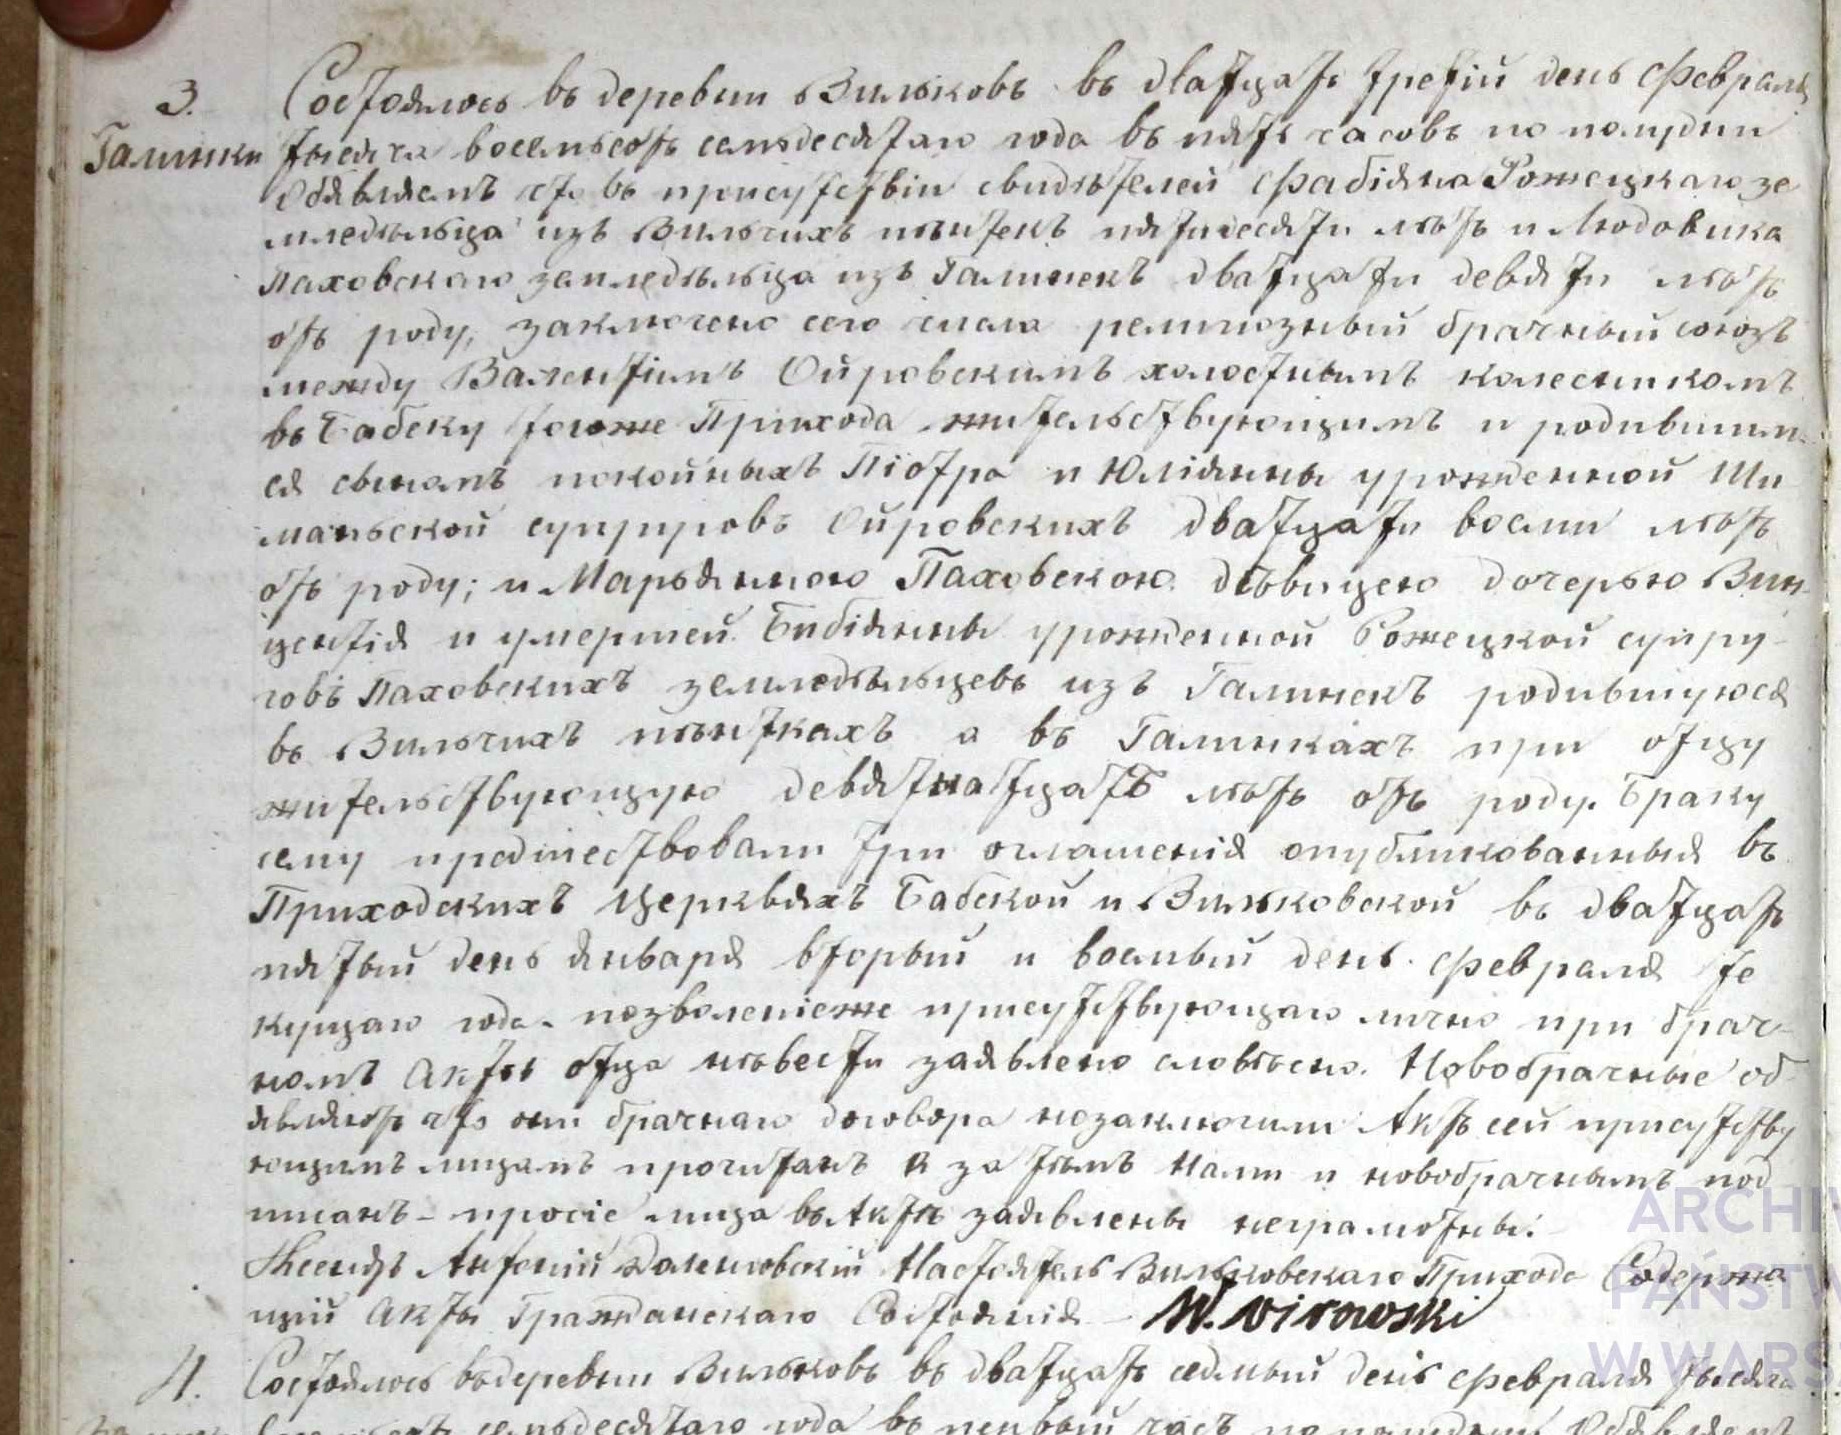 3. Состоялось въ деревни Вильковъ въ дватцать третій день Февраля
Галинки тысяча восемьсотъ семьдесятаго года въ пять часовъ по полудни
Объявляемъ что въ присутствіи свидѣтелей Фабіяна Рожецкаго зе
мледѣльца изъ Вильчихъ пѣнтекъ пятидесяти лѣтъ и Людовика
Паховскаго земледѣльца изъ Галинекъ дватцати девяти лѣтъ
отъ роду, заключено сего числа религiозный брачный союзъ
между Валентіимъ Ойровскимъ холостымъ колесникомъ
въ Бабску тогоже Прихода жительствующимъ и родившим
ся сыномъ покойныхъ Піотра и Юліянны урожденной Ши
маньской супруровъ Ойровскихъ дватцати восми лѣтъ
отъ роду; и Марьянною Паховскою дѣвицею дочерью Вин-
центія и умершей Бибіянны урожденной Рожецкой супру-
говъ Паховскихъ земледѣльцевъ изъ Галинекъ родившуюся
въ Вильчихъ пѣнткахъ а въ Галинкахъ при отцу
жительствующую девятнатцать лѣтъ отъ роду. Браку
сему предшествовали три оглашенія опубликованныя въ
Приходскихъ Церквяхъ Бабской и Вильковской въ дватцать
пятый день января вторый и восмый день Февраля те
кущаго года. позволеніеже присутствующаго лично при брач-
номъ Актѣ отца невести заявлено словѣсно. Новобрачные об-
являютъ что они брачнаго договора незаключили Актъ сей присутству
ющимъ лицамъ прочитанъ и за тѣмъ Нами и новобрачнымъ под
писанъ - прочіе лица въ Актѣ заявлены неграмотны.
Ксендзъ Антоній Настоятель Вильковскаго Прихода Содержа
щій Акты Гражданскаго Состоянія - W. oirowski
4. Состоялось въ деревни Вильковъ въ дватцать седмый день Февраля тысяча
семьдесятаго года въ первый часъ по полудни Объявляемъ